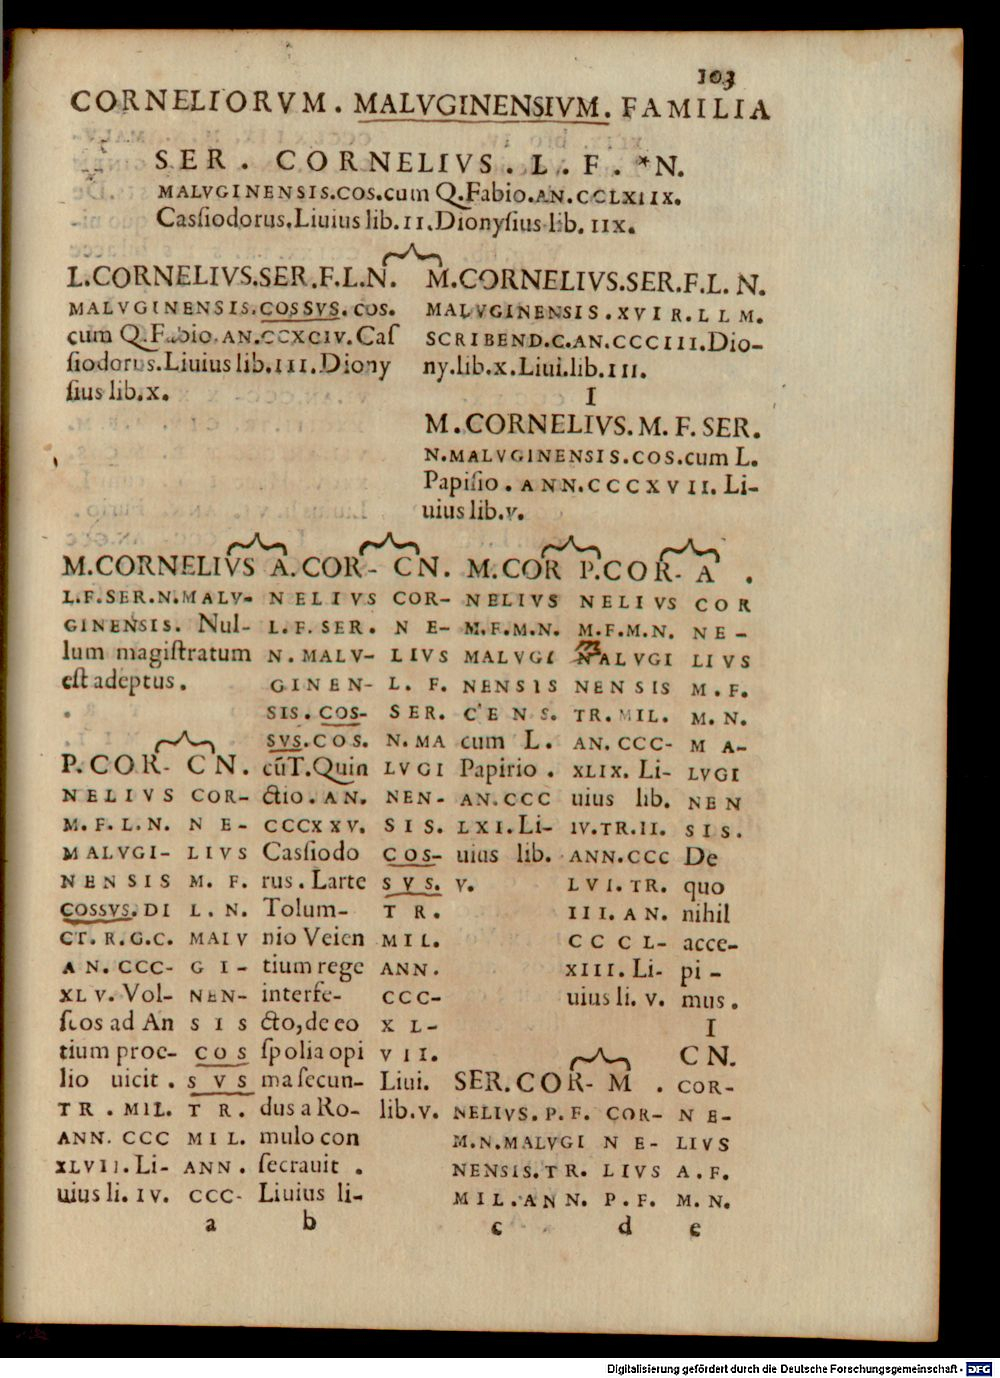 103
CORNELIORVM. MALVGINENSIVM. FAMILIA
SER. CORNELIVS. L. F. *N.
MALVGINENSIS.COS.cum Q.Fabio.AN.CCLXIIX.
Caſsiodorus.Liuius lib.II.Dionyſius lib.IIX.
L.CORNELIVS.SER.F.L.N.
MALVGINENSIS.COSSVS.COS.
cum Q.Fabio.AN.CCXCIV.Caſ
ſiodorus.Liuius lib.III.Diony
ſius lib.X.
M.CORNELIVS.SER.F.L.N.
MALVGINENSIS.XVIR.LLM.
SCRIBEND.C.AN.CCCIII.Dio-
ny.lib.X.Liui.lib.III.
I
M.CORNELIVS.M.F.SER.
N.MALVGINENSIS.COS.cum L.
Papiſio.ANN.CCCXVII.Li-
uius lib.V.
M.CORNELIVS
L.F.SER.N.MALV-
GINENSIS. Nul-
lum magiſtratum
eſt adeptus.
.
P.COR-
NELIVS
M.F.L.N.
MALVGI-
NENSIS
COSSVS.DI
CT.R.G.C.
AN.CCC-
XLV.Vol-
ſcos ad An
tium proe-
lio uicit.
TR.MIL.
ANN.CCC
XLVII.Li-
uius li.IV.
CN.
COR-
NE-
LIVS
M.F.
L.N.
MALV
GI-
NEN-
SIS
COS
SVS
TR.
MIL.
ANN.
CCC-
a
A.COR-
NELIVS
L.F.SER.
N.MALV-
GINEN-
SIS.COS-
SVS.COS.
cũT.Quin
ctio.AN.
CCCXXV.
Caſſiodo
rus.Larte
Tolum-
nio Veien
tium rege
interfe-
cto,de eo
ſpolia opi
ma ſecun-
dus a Ro-
mulo con
ſecrauit.
Liuius li-
b
CN.
COR-
NE-
LIVS
L.F.
SER.
N.MA
LVGI
NEN-
SIS.
COS-
SVS.
TR.
MIL.
ANN.
CCC-
XL-
VII.
Liui.
lib.V.
M.COR
NELIVS
M.F.M.N.
MALVGI
NENSIS
CENS.
cum L.
Papirio.
AN.CCC
LXI.Li-
uius lib.
V.
P.COR-
NELIVS
M.F.M.N.
m
NALVGI
NENSIS
TR.MIL.
AN.CCC-
XLIX.Li-
uius lib.
IV.TR.II.
ANN.CCC
LVI.TR.
III.AN.
CCCL-
XIII.Li-
uius li.V.
A.
COR
NE-
LIVS
M.F.
M.N.
MA-
LVGI
NEN
SIS.
De
quo
nihil
acce-
pi-
mus.
I
SER.COR-
NELIVS.P.F.
M.N.MALVGI
NENSIS.TR.
MIL.ANN.
c
M.
COR-
NE-
LIVS
P.F.
d
CN.
COR-
NE-
LIVS
A.F.
M.N.
e
Digitalisierung gefördert durch die Deutsche Forschungsgemeinschaft - DFG